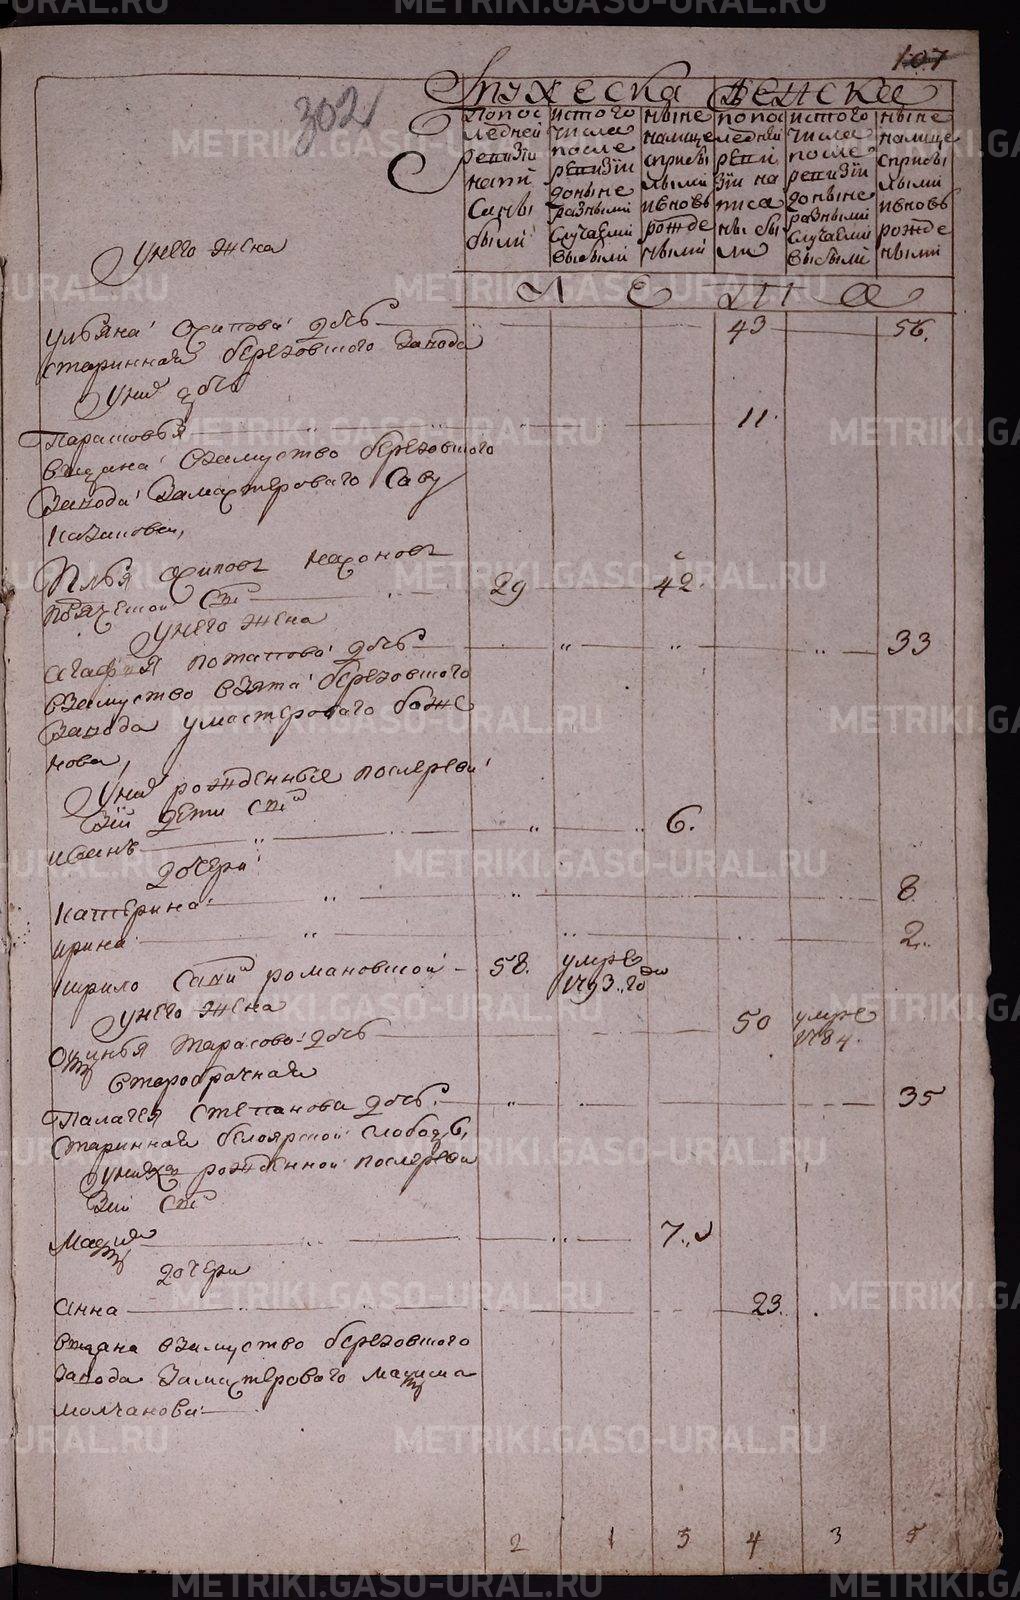 107
302
Мужеска Женска
попос
ледней
ревизiи
напи
саны
были
истого
числа
после
ревизiи
доныне
разными
случаеми
выбыли
ныне
налице
спрiбы
лыми
ивновь
рожде
ными
попос
ледней
реви
зiи на
писа
ны бы
ли
истого
числа
после
ревизiи
доныне
разными
случаеми
выбыли
ныне
налице
спрiбы
лыми
ивновь
рожде
ными
Лета
унего жена
ульяна архипова дочь 43 56.
старинная березовского завода
унея дочь
Парасковья 11.
выдана взамуство березовского
завода замастероваго Саву
Казанова,
Илья архипов 29 42.
унего жена
агафия потапова дочь 33
взамуство взята березовского
завода умастероваго боже
нова,
унея рожденные послереви
зiи дети сны
иванъ 6.
дочери
катерина 8
ирина 2.
кирило романовской 58. умре
1793.годы
унего жена
тарасова дочь 50 умре
1784.
Старобрачная
Палагея степанова дочь. 35
старинная белоярской слободы,
рожденной послереви
зiи сн
7.
дочери
анна 23.
выдана взамуство березовского
завода замастероваго максима
молчанова
2 1 3 4 3 5
METRIKI.GASO-URAL.RU